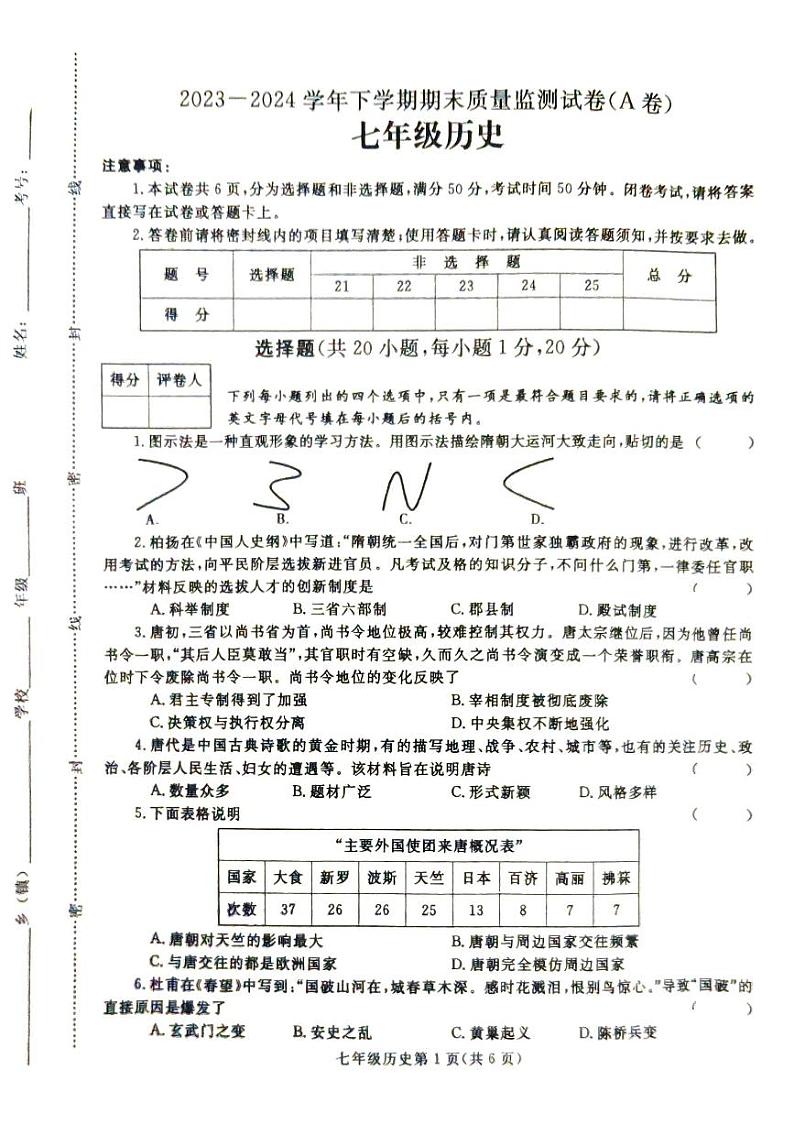 2023—2024学年下学期期末质量监测试卷(A卷)
七年级历史
注意事项:
1.本试卷共6页,分为选择题和非选择题,满分50分,考试时间50分钟。闭卷考试,请将答案
直接写在试卷或答题卡上。
2.答卷前请将密封线内的项目填写清楚;使用答题卡时,请认真阅读答题须知,并按要求去做。
题 号 选择题 非 选 择 题 总 分
21 22 23 24 25
得 分
选择题(共20小题,每小题1分,20分)
得分 评卷人
下列每小题列出的四个选项中,只有一项是最符合题目要求的,请将正确选项的
英文字母代号填在每小题后的括号内。
1.图示法是一种直观形象的学习方法。用图示法描绘隋朝大运河大致走向,贴切的是 ( )
A. B. C. D.
2.柏杨在《中国人史纲》中写道:“隋朝统一全国后,对门第世家独霸政府的现象,进行改革,改
用考试的方法,向平民阶层选拔新进官员。凡考试及格的知识分子,不问什么门第,一律委任官职
……”材料反映的选拔人才的创新制度是 ( )
A.科举制度 B.三省六部制 C.郡县制 D.殿试制度
3.唐初,三省以尚书省为首,尚书令地位极高,较难控制其权力。唐太宗继位后,因为他曾任尚
书令一职,“其后人臣莫敢当”,其官职时有空缺,久而久之尚书令演变成一个荣誉职衔。唐高宗在
位时下令废除尚书令一职。尚书令地位的变化反映了 ( )
A.君主专制得到了加强 B.宰相制度被彻底废除
C.决策权与执行权分离 D.中央集权不断地强化
4.唐代是中国古典诗歌的黄金时期,有的描写地理、战争、农村、城市等,也有的关注历史、政
治、各阶层人民生活、妇女的遭遇等。该材料旨在说明唐诗 ( )
A.数量众多 B.题材广泛 C.形式新颖 D.风格多样
5.下面表格说明 ( )
“主要外国使团来唐概况表”
国家 大食 新罗 波斯 天竺 日本 百济 高丽 拂菻
次数 37 26 26 25 13 8 7 7
A.唐朝对天竺的影响最大 B.唐朝与周边国家交往频繁
C.与唐交往的都是欧洲国家 D.唐朝完全模仿周边国家
6.杜甫在《春望》中写到:“国破山河在,城春草木深。感时花溅泪,恨别鸟惊心。”导致“国破”的
直接原因是爆发了 ( )
A.玄武门之变 B.安史之乱 C.黄巢起义 D.陈桥兵变
七年级历史第1页(共6页)
乡(镇) 学校 年级 班 姓名: 考号:
密 封 线 密 封 线